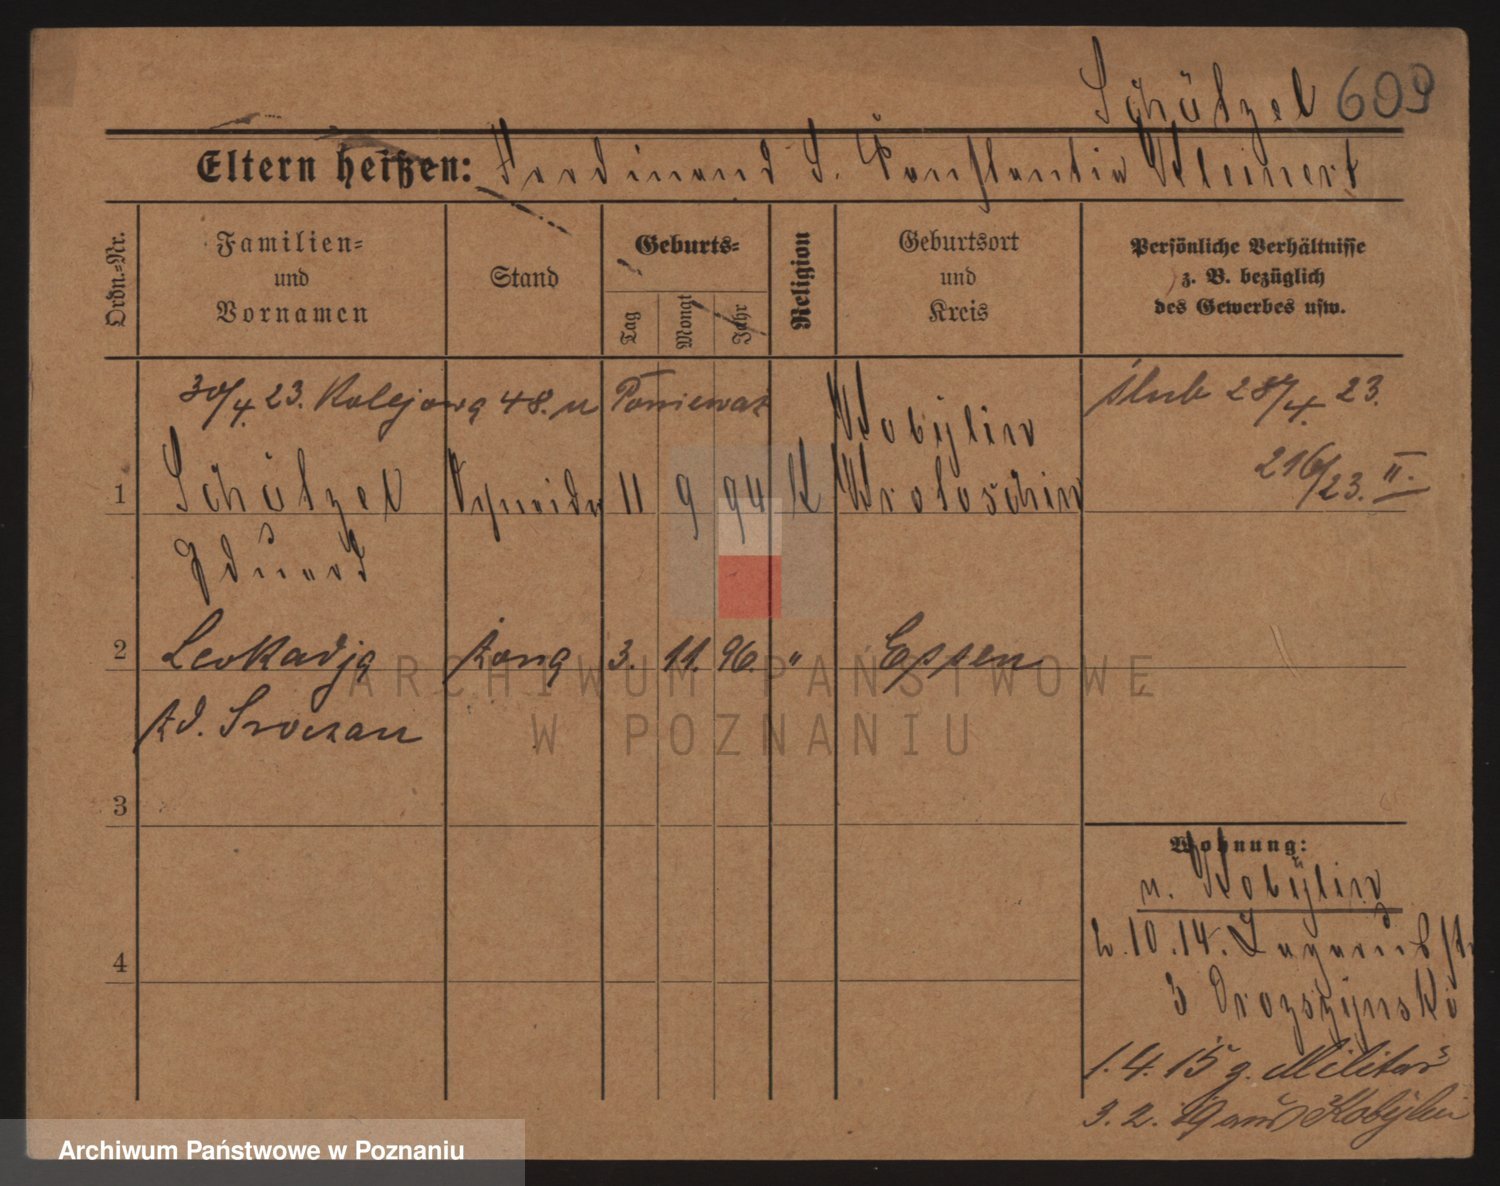 Schölzel 609
Eltern heißen: Ferdinand S. Constantia Kleinert
Ordn.-Nr.
Familien-
und
Vornamen
Stand
Geburts-
Tag
Monat
Jahr
Religion
Geburtsort
und
Kreis
Persönliche Verhältnisse
z. B. bezüglich
des Gewerbes usw.
30/4. 23. Kolejowa 48. u Poniewaz
ślub 28/4. 23.
216/23. II.
Kobylin
1 Schölzel 11 9 94 K Krotoschin
Eduard
2 Leokadja żona 3. 11. 96. " Eppen
3
4
Wohnung:
v. Kobylin
2.10.14.
3
1.4.15 z. Militär
3.2.19 aus Kobylin
ARCHIWUM PAŃSTWOWE
W POZNANIU
Archiwum Państwowe w Poznaniu